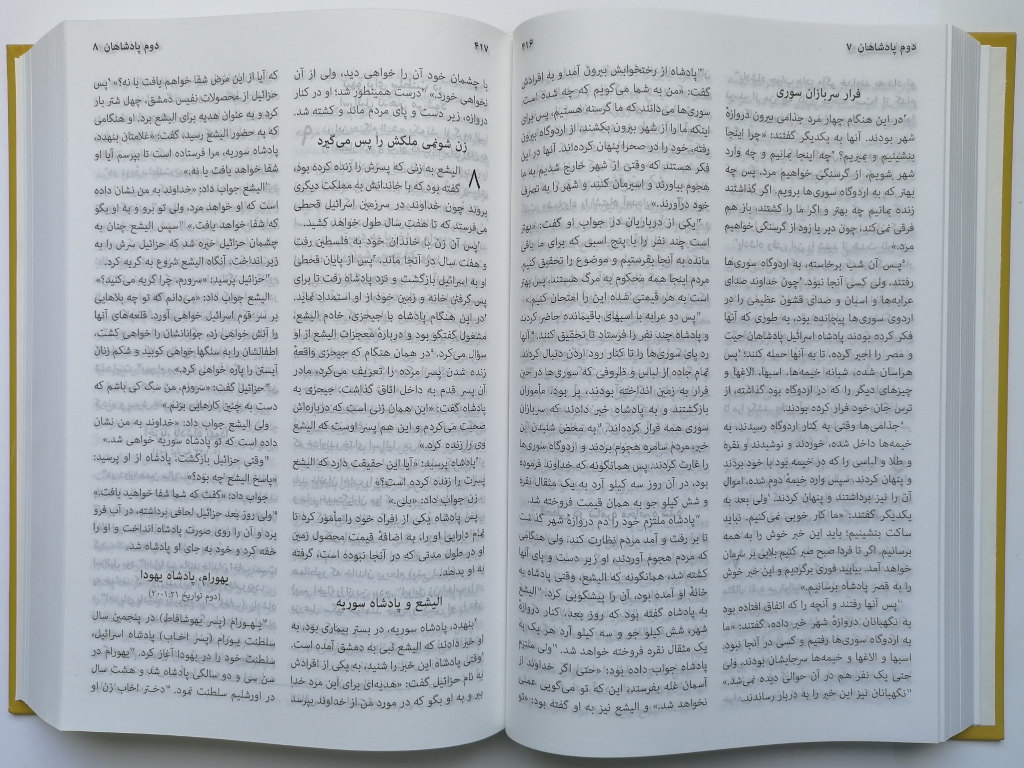 دوم پادشاهان ۷
۴۱۶
فرار سربازان سوری
در این هنگام چهار مرد جذامی بیرون دروازهٔ
شهر بودند. آنها به یکدیگر گفتند: «چرا اینجا
بنشینیم و بمیریم؟ چه اینجا بمانیم و چه وارد
شهر شویم، از گرسنگی خواهیم مرد. پس چه
بهتر که به اردوگاه سوری‌ها برویم. اگر گذاشتند
زنده بمانیم چه بهتر و اگر ما را کشتند، باز هم
فرقی نمی‌کند، چون دیر یا زود از گرسنگی خواهیم
مرد.»
پس آن شب برخاسته، به اردوگاه سوری‌ها
رفتند، ولی کسی آنجا نبود. چون خداوند صدای
عرابه‌ها و اسبان و صدای قشون عظیمی را در
اردوی سوری‌ها پیچانده بود، به طوری که آنها
فکر کرده بودند پادشاه اسرائیل پادشاهان حیت
و مصر را اجیر کرده، تا به آنها حمله کنند؛ پس
هراسان شده، شبانه خیمه‌ها، اسبها، الاغها و
چیزهای دیگر را که در اردوگاه بود گذاشته، از
ترس جان خود فرار کرده بودند.
جذامی‌ها وقتی به کنار اردوگاه رسیدند، به
خیمه‌ها داخل شده، خوردند و نوشیدند و نقره
و طلا و لباسی را که در خیمه بود با خود بردند
و پنهان کردند. سپس وارد خیمهٔ دوم شده، اموال
آن را نیز برداشتند و پنهان کردند. ولی بعد به
یکدیگر گفتند: «ما کار خوبی نمی‌کنیم. نباید
ساکت بنشینیم؛ باید این خبر خوش را به همه
برسانیم. اگر تا فردا صبح صبر کنیم بلایی بر سرمان
خواهد آمد. بیایید فوری برگردیم و این خبر خوش
را به قصر پادشاه برسانیم.»
پس آنها رفتند و آنچه را که اتفاق افتاده بود
به نگهبانان دروازهٔ شهر خبر داده، گفتند: «ما
به اردوگاه سوری‌ها رفتیم و کسی در آنجا نبود.
اسبها و الاغها و خیمه‌ها سرجایشان بودند، ولی
حتی یک نفر هم در آن حوالی دیده نمی‌شد.»
نگهبانان نیز این خبر را به دربار رساندند.
پادشاه از رختخوابش بیرون آمد و به افرادش
گفت: «من به شما می‌گویم که چه شده است.
سوری‌ها می‌دانند که ما گرسنه هستیم، پس برای
اینکه ما را از شهر بیرون بکشند، از اردوگاه بیرون
رفته، خود را در صحرا پنهان کرده‌اند. آنها در این
فکر هستند که وقتی از شهر خارج شدیم به ما
هجوم بیاورند و اسیرمان کنند و شهر را به تصرف
خود درآورند.»
یکی از درباریان در جواب او گفت: «بهتر
است چند نفر را با پنج اسبی که برای ما باقی
مانده به آنجا بفرستیم و موضوع را تحقیق کنیم.
مردم اینجا همه محکوم به مرگ هستند، پس بهتر
است به هر قیمتی شده این را امتحان کنیم.»
پس دو عرابه با اسبهای باقیمانده حاضر کردند
و پادشاه چند نفر را فرستاد تا تحقیق کنند. آنها
رد پای سوری‌ها را تا کنار رود اردن دنبال کردند.
تمام جاده از لباس و ظروفی که سوری‌ها در حین
فرار به زمین انداخته بودند، پر بود. مأموران
بازگشتند و به پادشاه خبر دادند که سربازان
سوری همه فرار کرده‌اند. به محض شنیدن این
خبر، مردم سامره هجوم بردند و اردوگاه سوری‌ها
را غارت کردند. پس همانگونه که خداوند فرموده
بود، در آن روز سه کیلو آرد به یک مثقال نقره
و شش کیلو جو به همان قیمت فروخته شد.
پادشاه ملتزم خود را دم دروازهٔ شهر گذاشت
تا بر رفت و آمد مردم نظارت کند. ولی هنگامی
که مردم هجوم آوردند، او زیر دست و پای آنها
کشته شد، همانگونه که الیشع، وقتی پادشاه به
خانهٔ او آمده بود، آن را پیشگویی کرد. الیشع
به پادشاه گفته بود که روز بعد، کنار دروازهٔ
شهر، شش کیلو جو و سه کیلو آرد هر یک به
یک مثقال نقره فروخته خواهد شد. ولی ملتزم
پادشاه جواب داده بود: «حتی اگر خداوند از
آسمان غله بفرستد، این که تو می‌گویی عملی
نخواهد شد.» و الیشع نیز به او گفته بود: «تو
۴۱۷
دوم پادشاهان ۸
با چشمان خود آن را خواهی دید، ولی از آن
نخواهی خورد.» درست همینطور شد؛ او در کنار
دروازه، زیر دست و پای مردم ماند و کشته شد.
زن شونمی ملکش را پس می‌گیرد
۸ الیشع به زنی که پسرش را زنده کرده بود،
گفته بود که با خاندانش به مملکت دیگری
بروند چون خداوند در سرزمین اسرائیل قحطی
می‌فرستد که تا هفت سال طول خواهد کشید.
پس آن زن با خاندان خود به فلسطین رفت
و هفت سال در آنجا ماند. پس از پایان قحطی
او به اسرائیل بازگشت و نزد پادشاه رفت تا برای
پس گرفتن خانه و زمین خود از او استمداد نماید.
در این هنگام پادشاه با جیحزی، خادم الیشع،
مشغول گفتگو بود و دربارهٔ معجزات الیشع از او
سؤال می‌کرد. در همان هنگام که جیحزی واقعهٔ
زنده شدن پسر مرده را تعریف می‌کرد، مادر
آن پسر قدم به داخل اتاق گذاشت. جیحزی به
پادشاه گفت: «این همان زنی است که درباره‌اش
صحبت می‌کردم و این هم پسر اوست که الیشع
وی را زنده کرد.»
پادشاه پرسید: «آیا این حقیقت دارد که الیشع
پسرت را زنده کرده است؟»
زن جواب داد: «بلی.»
پس پادشاه یکی از افراد خود را مأمور کرد تا
تمام دارایی او را، به اضافهٔ قیمت محصول زمین
او در طول مدتی که در آنجا نبوده است، گرفته
به او بدهند.
الیشع و پادشاه سوریه
بنهدد، پادشاه سوریه، در بستر بیماری بود. به
او خبر دادند که الیشع نبی به دمشق آمده است.
وقتی پادشاه این خبر را شنید، به یکی از افرادش
به نام حزائیل گفت: «هدیه‌ای برای این مرد خدا
ببر و به او بگو که در مورد من از خداوند بپرسد
که آیا از این مرض شفا خواهم یافت یا نه؟» پس
حزائیل از محصولات نفیس دمشق، چهل شتر بار
کرد و به عنوان هدیه برای الیشع برد. او هنگامی
که به حضور الیشع رسید، گفت: «غلامتان بنهدد،
پادشاه سوریه، مرا فرستاده است تا بپرسم آیا او
شفا خواهد یافت یا نه.»
الیشع جواب داد: «خداوند به من نشان داده
است که او خواهد مرد، ولی تو برو و به او بگو
که شفا خواهد یافت.» سپس الیشع چنان به
چشمان حزائیل خیره شد که حزائیل سرش را به
زیر انداخت. آنگاه الیشع شروع به گریه کرد.
حزائیل پرسید: «سرورم، چرا گریه می‌کنید؟»
الیشع جواب داد: «می‌دانم که تو چه بلاهایی
بر سر قوم اسرائیل خواهی آورد. قلعه‌های آنها
را آتش خواهی زد، جوانانشان را خواهی کشت،
اطفالشان را به سنگها خواهی کوبید و شکم زنان
آبستن را پاره خواهی کرد.»
حزائیل گفت: «سرورم، من سگ کی باشم که
دست به چنین کارهایی بزنم.»
ولی الیشع جواب داد: «خداوند به من نشان
داده است که تو پادشاه سوریه خواهی شد.»
وقتی حزائیل بازگشت، پادشاه از او پرسید:
«پاسخ الیشع چه بود؟»
جواب داد: «گفت که شما شفا خواهید یافت.»
ولی روز بعد حزائیل لحافی برداشته، در آب فرو
برد و آن را روی صورت پادشاه انداخت و او را
خفه کرد و خود به جای او پادشاه شد.
یهورام، پادشاه یهودا
(دوم تواریخ ۲۱:۱-۲۰)
یهورام (پسر یهوشافاط) در پنجمین سال
سلطنت یورام (پسر اخاب) پادشاه اسرائیل،
سلطنت خود را در یهودا آغاز کرد. یهورام در
سن سی و دو سالگی پادشاه شد و هشت سال
در اورشلیم سلطنت نمود. دختر اخاب زن او